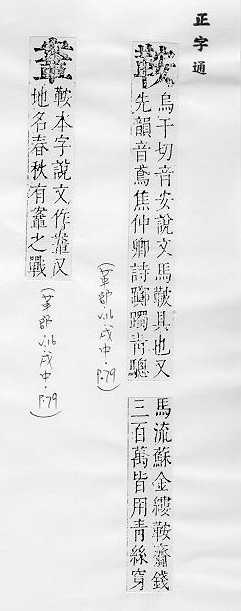 正字通
鞍
烏干切音安說文馬鞁具也又
先韻音鳶焦仲卿詩躑躅青驄
馬流蘇金縷鞍齎錢
三百萬皆用青絲穿
(革部 v.16 戌中. p.79)
鞌
鞍本字說文作鞌又
地名春秋有鞌之戰
(革部 v.16 戌中. p.79)